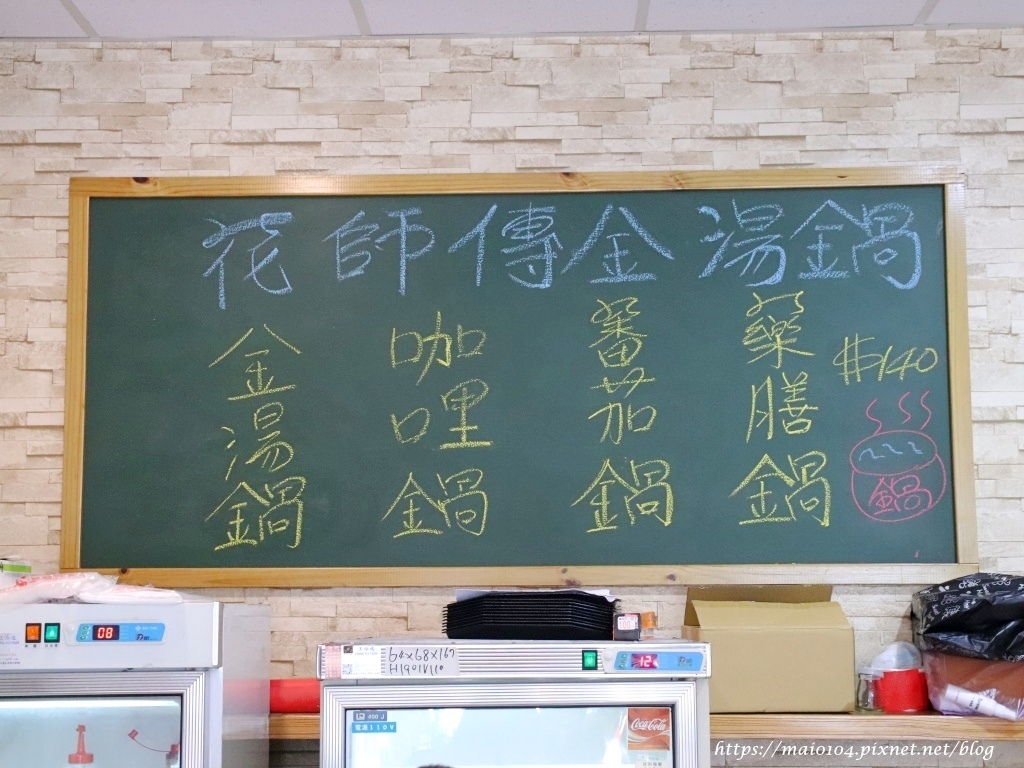 花師傅金湯鍋
金湯鍋
咖哩鍋
蕃茄鍋
藥膳鍋
$140
鍋
08
64x68x167
H1901110
12
450 J
電源110V
Coca-Cola
https://maio104.pixnet.net/blog